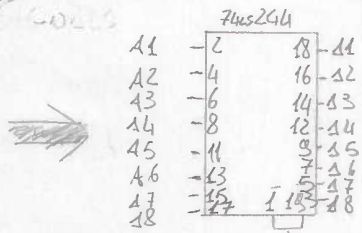 74LS244
A1 2 18 A1
A2 4 16 A2
A3 6 14 A3
A4 8 12 A4
A5 11 9 A5
A6 13 7 A6
A7 15 5 A7
A8 17 1 19 3 A8